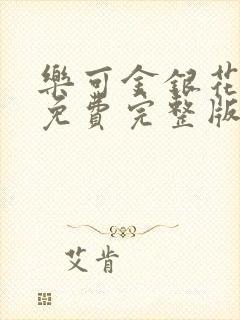 樂可金銀花
免費完整版
艾肯